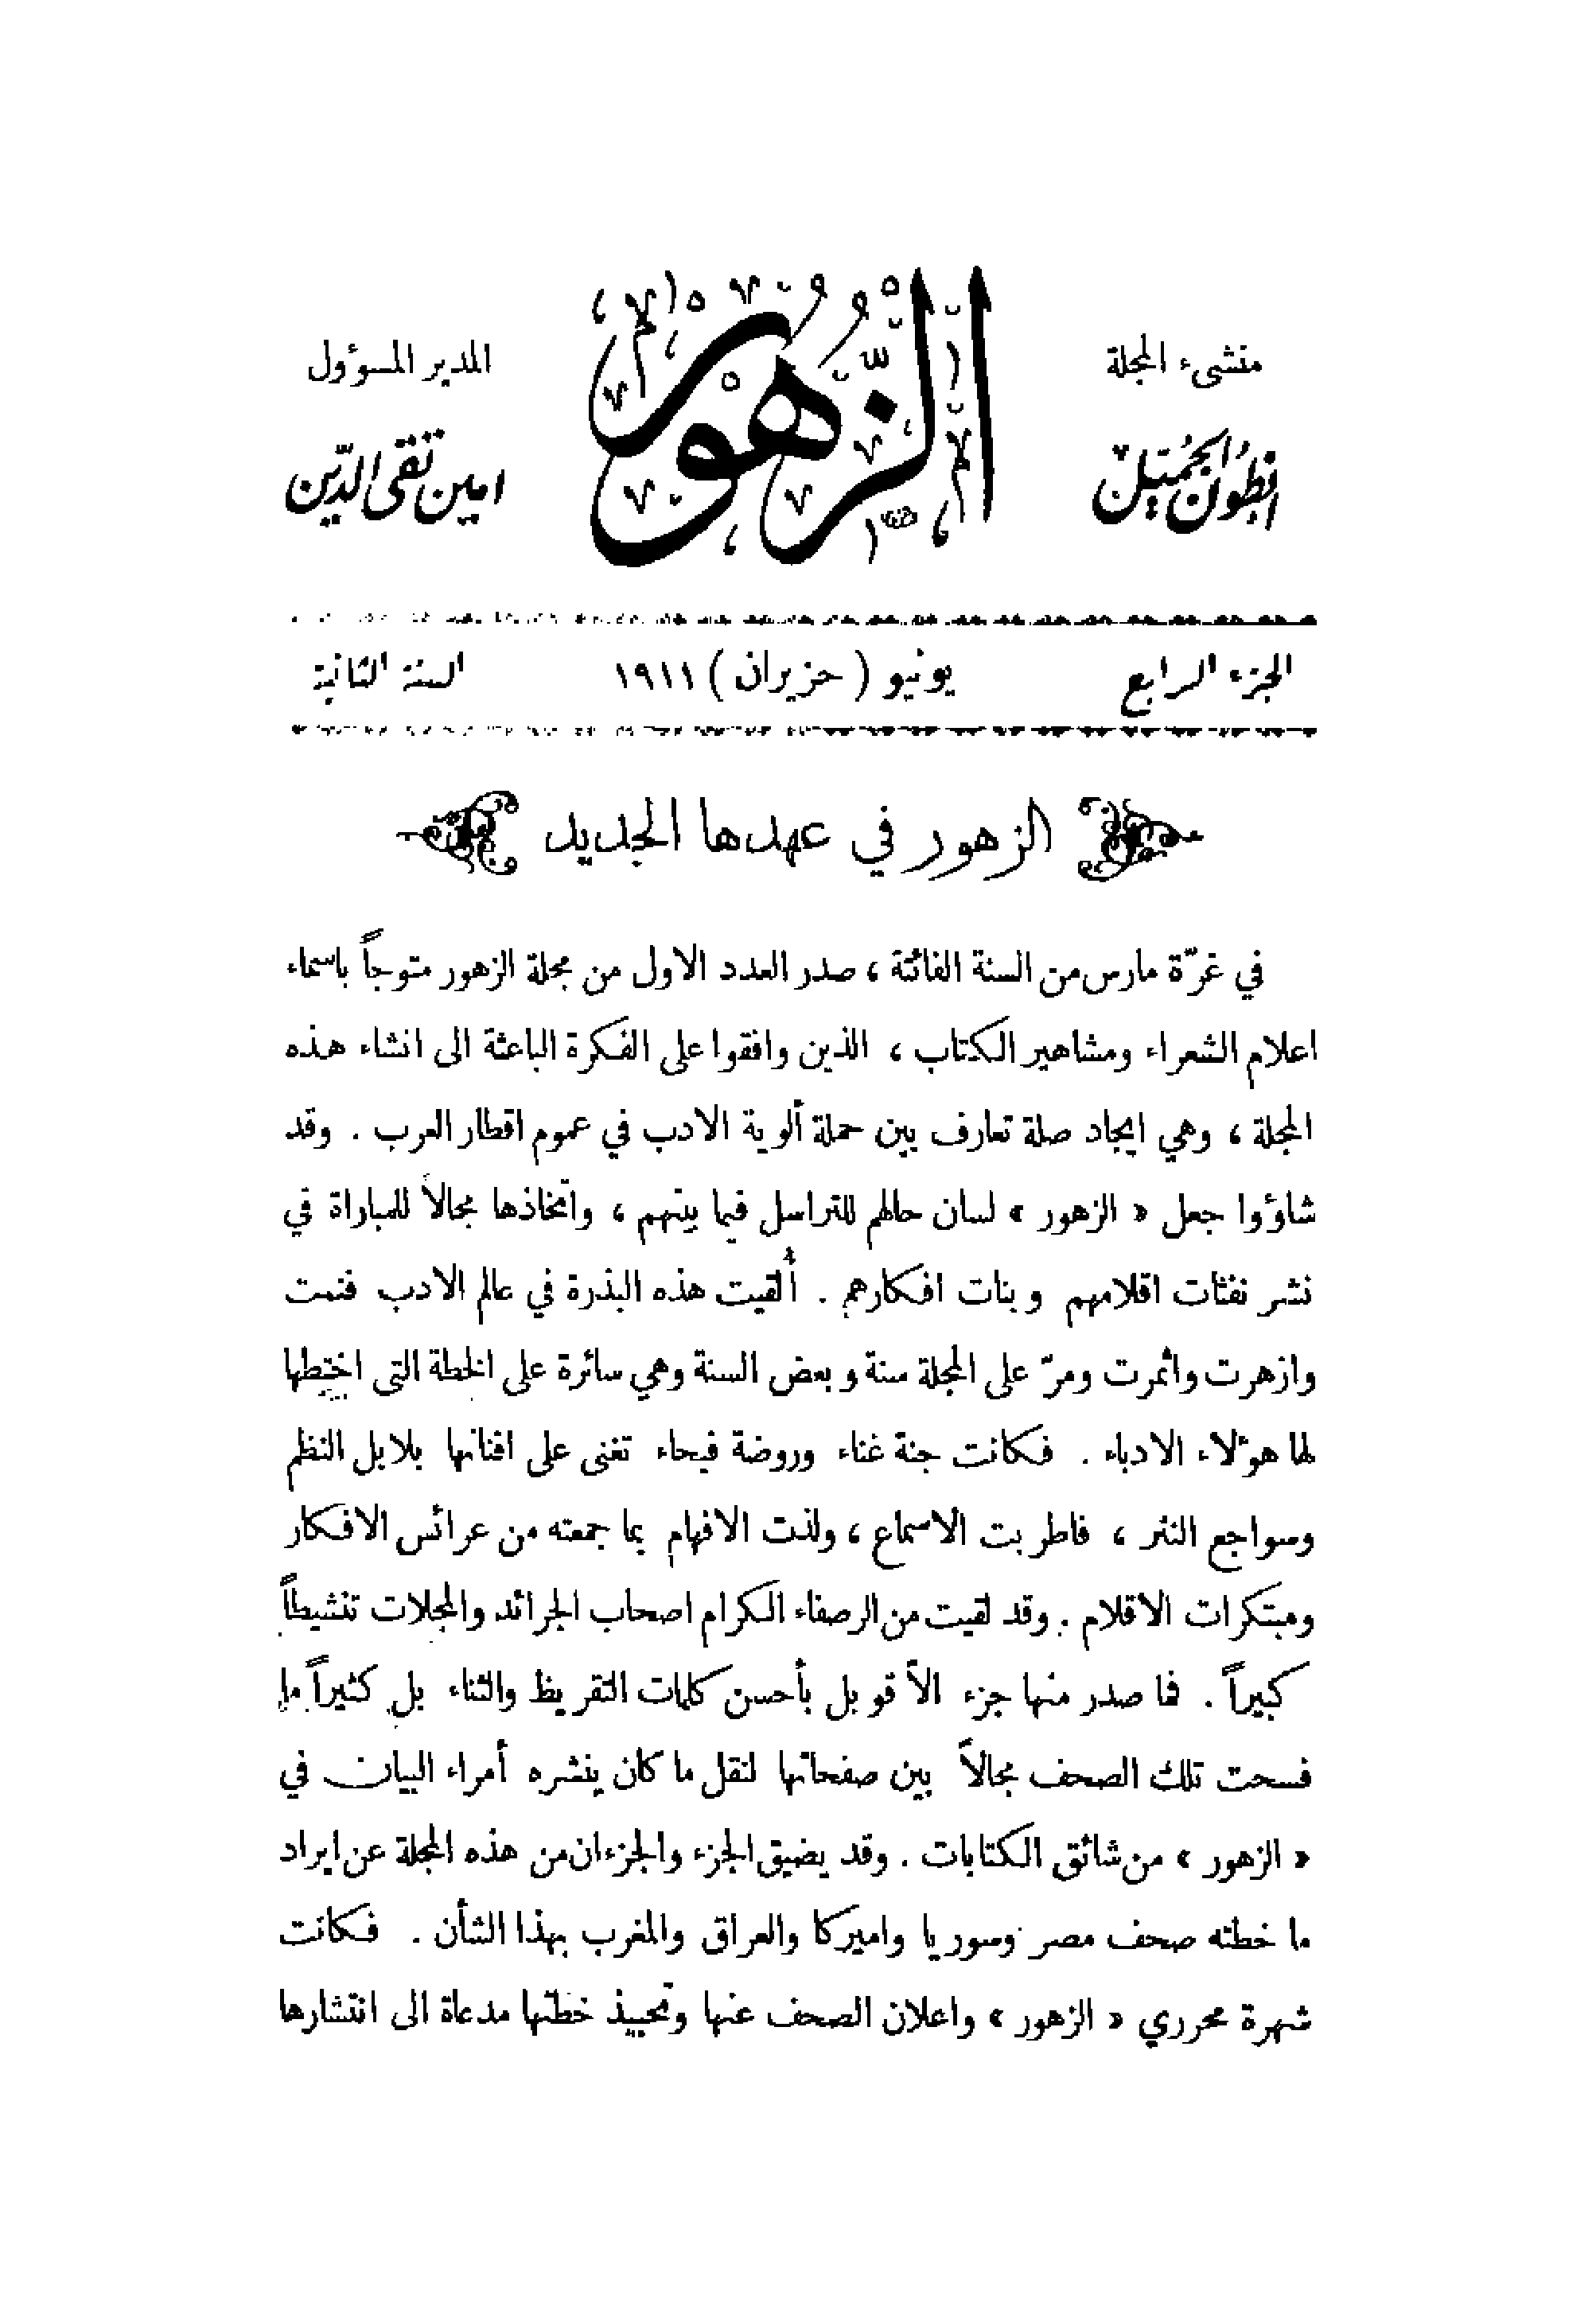 منشىء المجلة
انطون الجميّل
الزّهور
المدير المسوؤل
امين تقي الدّين
الجزء الرابع
يونيو ( حزيران ) ١٩١١
السنة الثانية
الزهور في عهدها الجديد
في غرّة مارس من السنة الفائتة ، صدر العدد الاول من مجلة الزهور متوجاً باسماء
اعلام الشعراء ومشاهير الكتاب ، الذين وافقوا على الفكرة الباعثة الى انشاء هذه
المجلة ، وهي ايجاد صلة تعارف بين حملة ألوية الادب في عموم اقطار العرب . وقد
شاؤوا جعل « الزهور » لسان حالهم للتراسل فيما بينهم ، واتخاذها مجالاً للمباراة في
نشر نفثات اقلامهم وبنات افكارهم . أُلقيت هذه البذرة في عالم الادب فنمت
وازهرت واثمرت ومرّ على المجلة سنة وبعض السنة وهي سائرة على الخطة التي اختطها
لها هوءلاء الادباء . فكانت جنة غناء وروضة فيحاء تغنى على افنانها بلابل النظم
وسواجع النثر ، فاطربت الاسماع ، ولذت الافهام بما جمعته من عرائس الافكار
ومبتكرات الاقلام . وقد لقيت من الرصفاء الكرام اصحاب الجرائد والمجلات تنشيطاً
كبيراً . فما صدر منها جزء الاّ قوبل بأحسن كلمات التقريظ والثناء بل كثيراً ما
فسحت تلك الصحف مجالاً بين صفحاتها لنقل ما كان ينشره أمراء البيان في
« الزهور » من شائق الكتابات . وقد يضيق الجزء والجزءان من هذه المجلة عن ايراد
ما خطته صحف مصر وسوريا واميركا والعراق والمغرب بهذا الشأن . فكانت
شهرة محرري « الزهور » واعلان الصحف عنها وتحبيذ خطتها مدعاة الى انتشارها